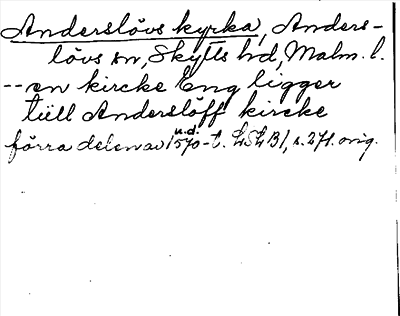 Anderslövs kyrka, Anders-
lövs sn, Skytts hd, Malm. l.
--en kircke Eng ligger
tiill Anderslöff kircke
u.d.
förra delen av 1570-t. LSLB1, s. 271. orig.